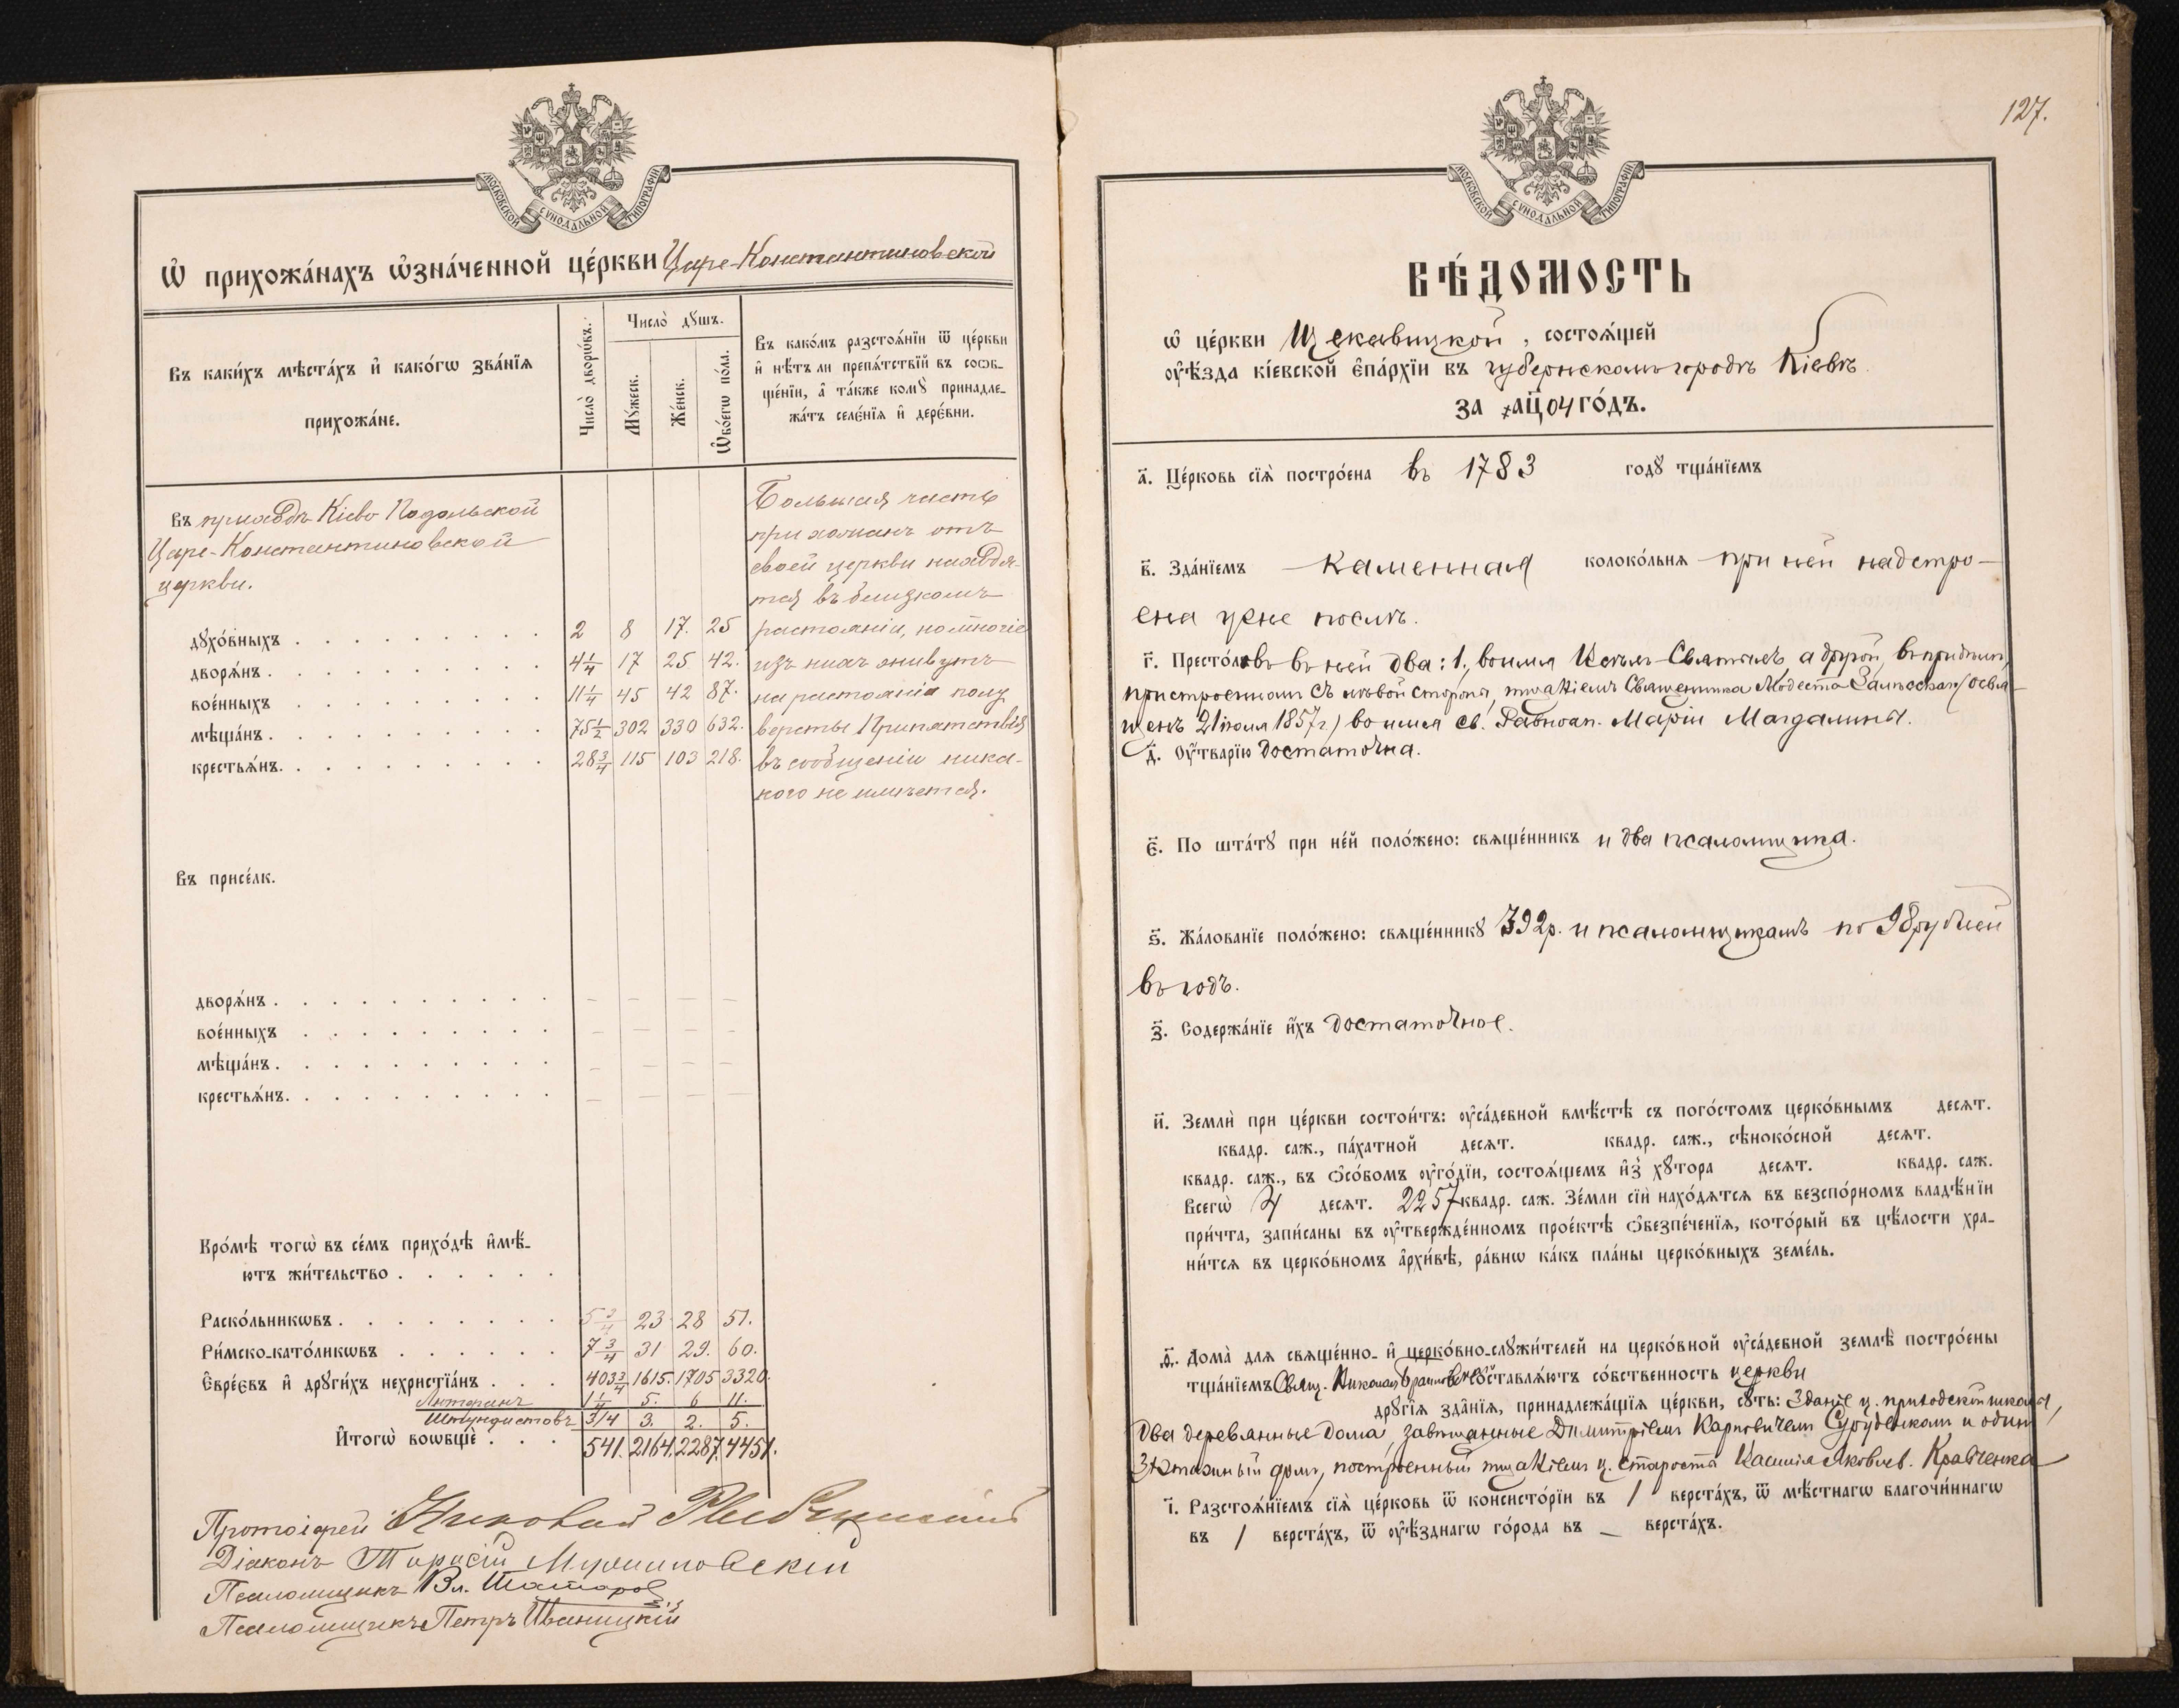 МОСКОВСКОЙ СѴНОДАЛЬНОЙ ТИПОГРАФІИ
Ѽ прихожа́нахъ ѡ҆зна́ченной це́ркви Царе-Константиновской
Въ каки́хъ мѣста́хъ и҆ како́гѡ зва́нїѧ
прихожа́не.
Число̀ дворѡ́въ.
Число̀ дꙋшъ.
Мꙋ́жеск.
Же́нск.
Ѻ҆бо́егѡ по́ла.
Въ како́мъ разстоѧ́нїи ѿ це́ркви
и҆ нѣ́тъ ли препѧ́тствїй въ соѡб-
ще́нїи, а҆ та́кже комꙋ̀ принадле-
жа́тъ селе́нїѧ и҆ дере́вни.
Въ приходѣ Кіево Подольской
Царе-Константиновской
церкви.
Большая часть
прихожанъ отъ
своей церкви находят-
ся въ близкомъ
растояніи, но многіе
изъ нихъ живутъ
на растояніи полу
версты Припятствія
въ сообщеніи ника-
кого не имѣется.
дꙋхо́вныхъ . . . 2 8 17. 25
дворѧ́нъ . . . 4 1/4 17 25 42.
вое́нныхъ . . . 11 1/4 45 42 87.
мѣща́нъ . . . 75 1/2 302 330 632.
крестьѧ́нъ . . . 28 3/4 115 103 218.
Въ присе́лк.
дворѧ́нъ . . . – – – –
вое́нныхъ . . . – – – –
мѣща́нъ . . . – – – –
крестьѧ́нъ . . . – – – –
Кро́мѣ тогѡ̀ въ се́мъ прихо́дѣ и҆мѣ́-
ютъ жи́тельство . . .
Раско́льникѡвъ . . . 5 3/4 23 28 51.
Ри́мско-като́ликѡвъ . . . 7 3/4 31 29. 60.
Є҆вре́євъ и҆ дрꙋги́хъ нехристїа́нъ . . . 403 3/4 1615. 1705 3320.
Лютеранъ 1 1/4 5. 6 11.
Штундистовъ 3/4 3. 2. 5.
И҆тогѡ̀ воѡбщѐ . . . 541. 2164. 2287. 4451.
Протоіерей Николай
Діаконъ Тарасій
Псаломщикъ Вл.
Псаломщикъ Петръ Иваницкій
127.
МОСКОВСКОЙ СѴНОДАЛЬНОЙ ТИПОГРАФІИ
ВѢ́ДОМОСТЬ
ѡ҆ це́ркви Щекавицкой, состоѧ́щей
оу҆ѣ́зда кі́евской є҆па́рхїи въ губернскомъ городѣ Кіевѣ.
за ҂ац҃04 го́дъ.
а҃. Це́рковь сїѧ̀ постро́ена въ 1783 годꙋ̀ тща́нїемъ
в҃. Зда́нїемъ каменная колоко́льня при ней надстро-
ена уже послѣ.
г҃. Престо́ловъ въ ней два: 1, во имя Всѣхъ Святыхъ, а другой, въ придѣлѣ,
пристроенномъ съ лѣвой стороны, тщаніемъ Священника Модеста (освя-
щенъ 21 іюля 1857 г.) во имя св. Равноап. Маріи Магдалины.
д҃. Оу҆́тварїю достаточна.
є҃. По шта́тꙋ при не́й поло́жено: свѧще́нникъ и два псаломщика.
ѕ҃. Жа́лованїе поло́жено: свѧще́нникꙋ 392 р. и псаломщикамъ по 98 рублей
въ годъ.
з҃. Содержа́нїе и҆́хъ достаточное.
и҃. Землѝ при це́ркви состои́тъ: оу҆са́дебной вмѣ́стѣ съ пого́стомъ церко́внымъ десѧт.
квадр. саж., па́хатной десѧт. квадр. саж., сѣноко́сной десѧт.
квадр. саж., въ ѻ҆со́бомъ оу҆го́дїи, состоѧ́щемъ и҆з̾ хꙋ́тора десѧт. квадр. саж.
всегѡ̀ 4 десѧт. 2257 квадр. саж. Зе́мли сїѝ нахо́дѧтсѧ въ безспо́рномъ владѣ́нїи
при́чта, запи́саны въ оу҆твержде́нномъ прое́ктѣ ѻ҆безпе́ченїѧ, кото́рый въ цѣ́лости хра-
ни́тсѧ въ церко́вномъ а҆рхи́вѣ, ра́внѡ ка́къ пла́ны церко́вныхъ земе́ль.
ѳ҃. Дома̀ для свѧще́нно- и҆ церко́вно-слꙋжи́телей на церко́вной оу҆са́дебной землѣ̀ постро́ены
тща́нїемъ Свящ. Николая составлѧ́ютъ со́бственность церкви
дрꙋгі́ѧ зда̂нїѧ, принадлежа́щїѧ це́ркви, сꙋ́ть: Зданіе ц. приходской школы,
два деревянные дома, завѣщанные Димитріемъ Карповичемъ и одинъ
3х этажный домъ, построенный тщаніемъ ц. старосты Яковлев. Кравченка
і҃. Разстоѧ́нїемъ сїѧ̀ це́рковь ѿ консисто́рїи въ 1 верста́хъ, ѿ мѣ́стнагѡ благочи́ннагѡ
въ 1 верста́хъ, ѿ оу҆ѣ́зднагѡ го́рода въ – верста́хъ.